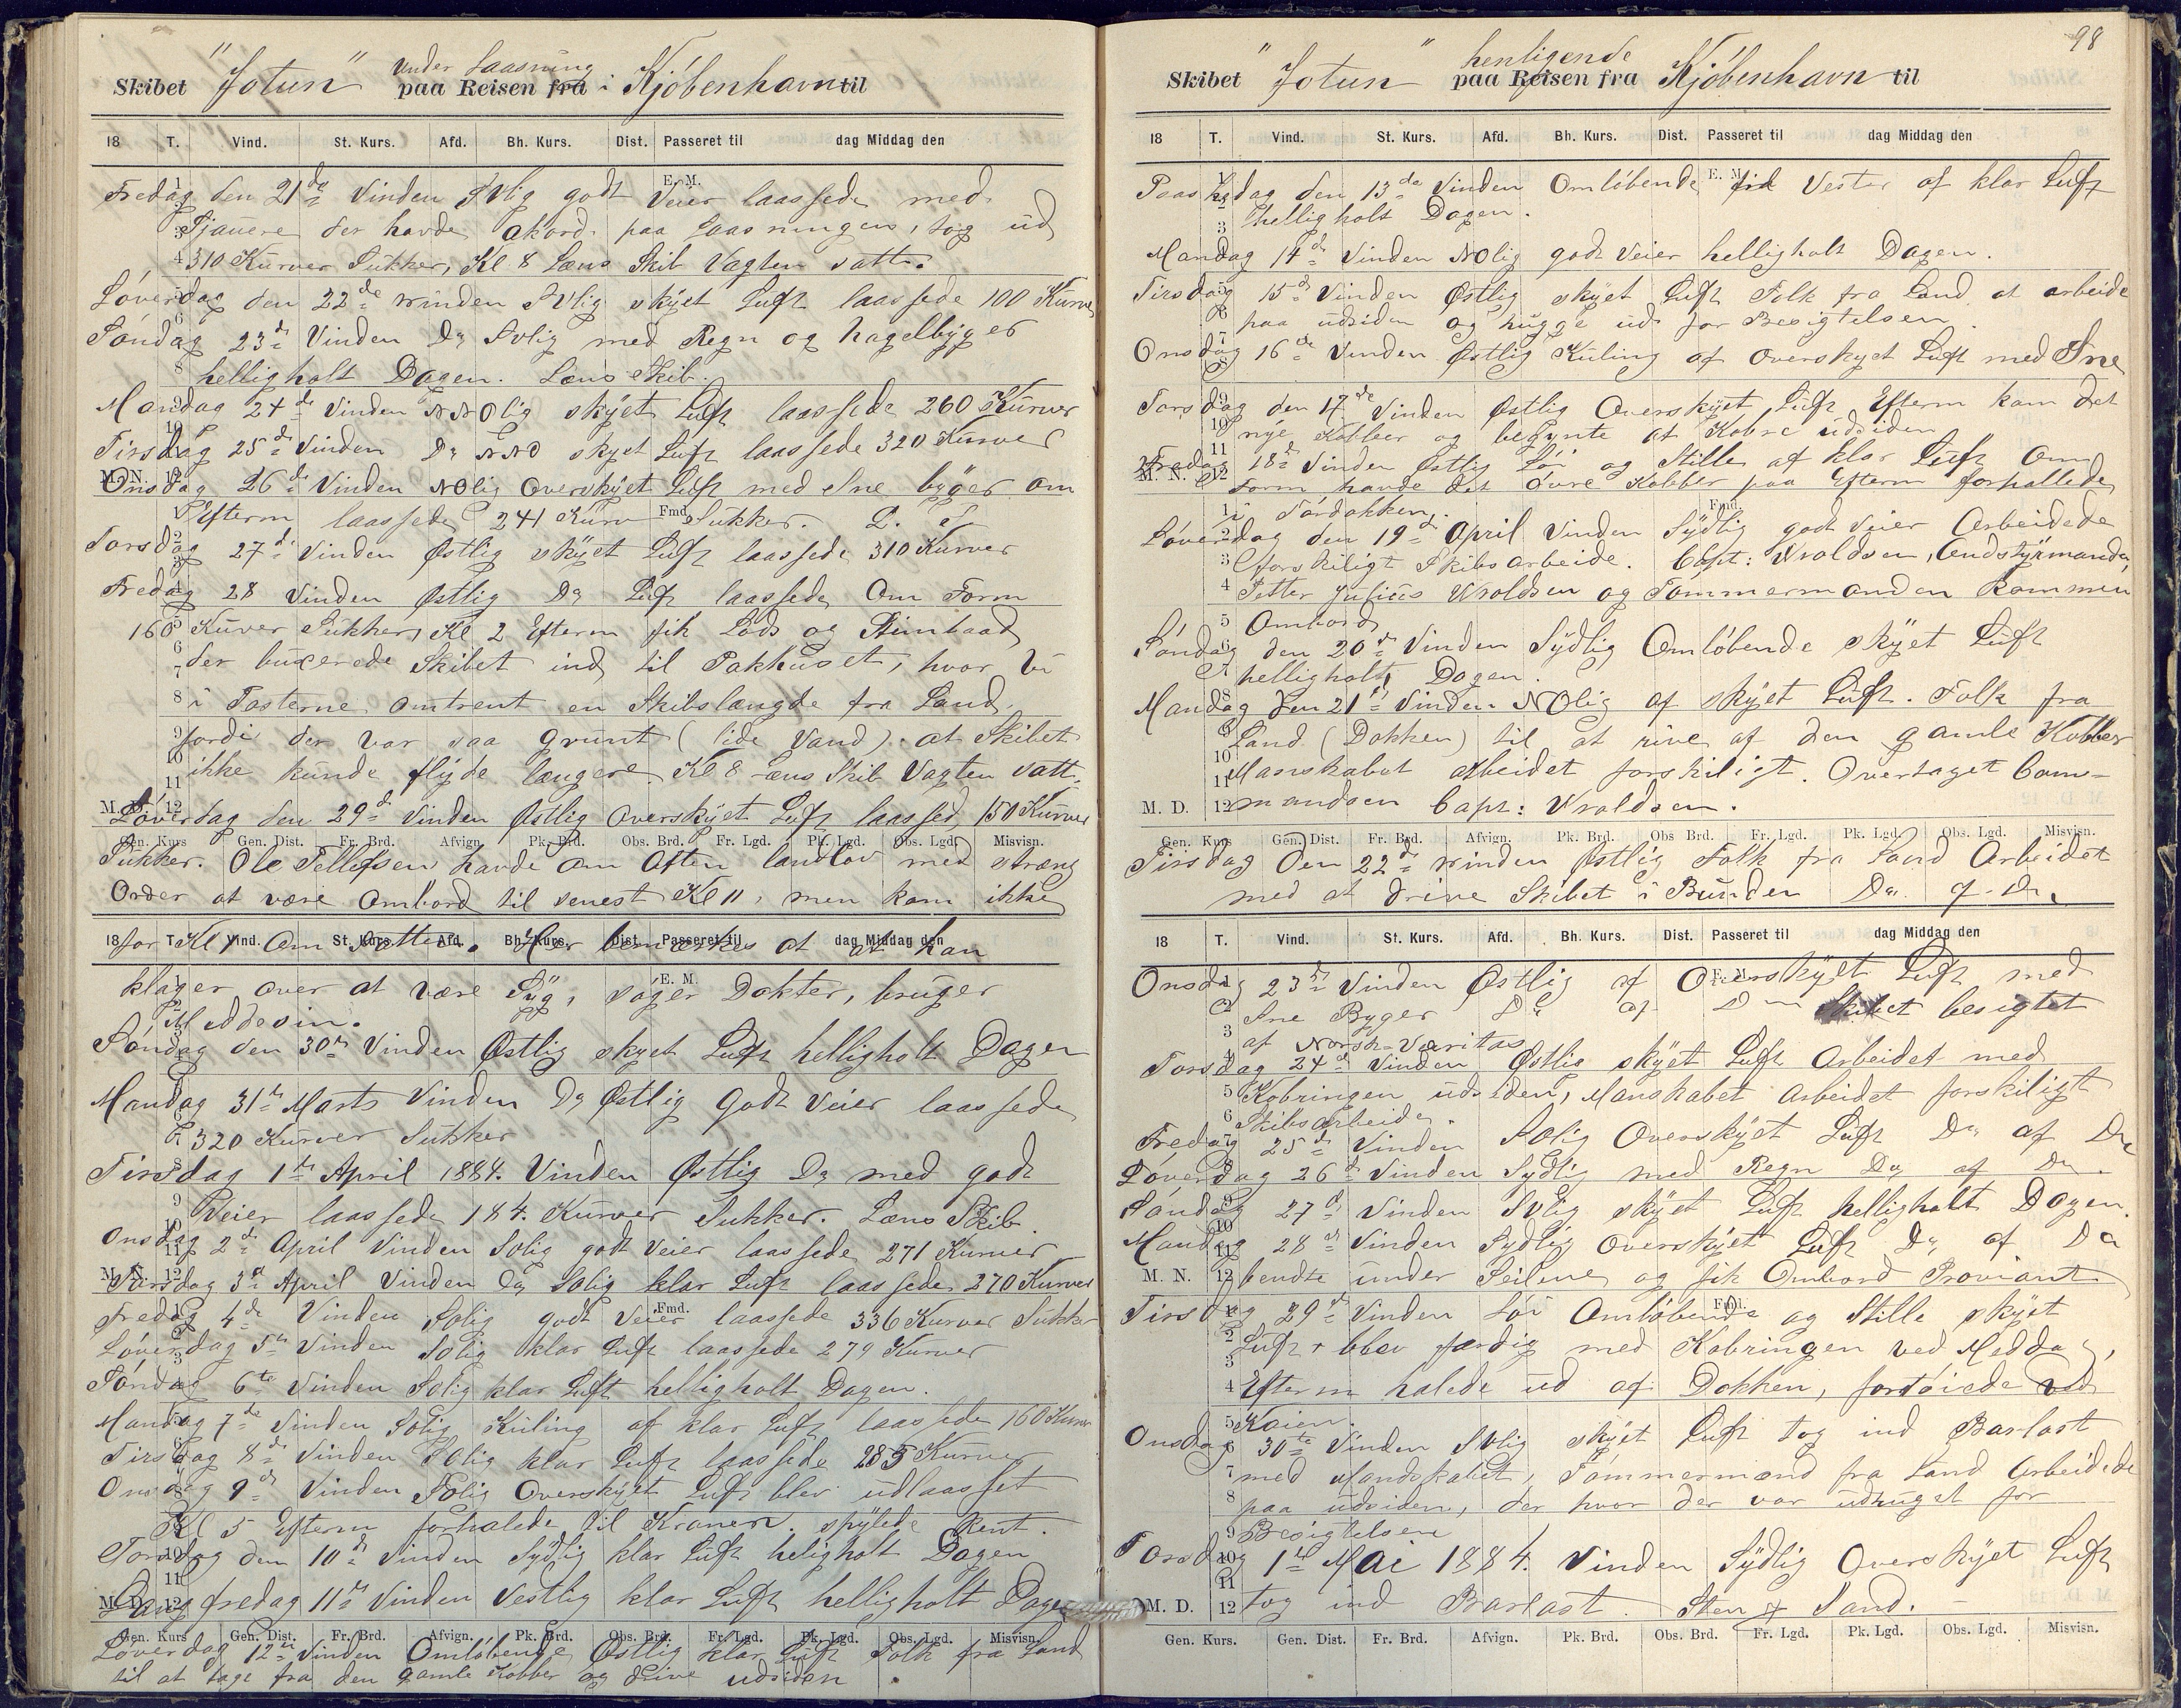 Skibet "Jotun" under Laasning paa Reisen fra i Kjöbenhavn til
18 T. Vind. St. Kurs. Afd. Bh. Kurs. Dist. Passeret til dag Middag den
Fredag den 21de Vinden SVlig godt Veier laassede med
Sjauere der havde Akord paa Laasningen, tog ud
310 Kurver Sukker, Kl 8 Læns Skib Vagten satt.
Löverdag den 22de Vinden SVlig skyet Luft laassede 100 Kurve
Söndag 23de Vinden Do SVlig med Regn og hagelbyger
helligholt Dagen. Læns Skib.
Mandag 24de Vinden NNOlig skyet Luft laassede 260 Kurver
Tirsdag 25de Vinden Do NNO skyet Luft laassede 320 Kurver
Onsdag 26de Vinden NOlig Overskyet Luft med Sne byger om
Efterm laassede 241 Kurv Sukker. L. S.
Torsdag 27de Vinden Østlig skyet Luft laassede 310 Kurver
Fredag 28 Vinden Østlig Do Luft laassede Om Form
160 Kurver Sukker, Kl 2 Efterm fik Lods og Stimbaad
der buxerede Skibet ind til Pakhuset, hvor vi
i Tosterne omtrent en Skibslængde fra Land
fordi der var saa grunt (lide Vand) at Skibet
ikke kunde flyde længere. Kl 8 Læns Skib Vagten satt.
Löverdag den 29de Vinden Østlig Overskyet Luft laassed 150 Kurver
Gen. Kurs Gen. Dist. Fr. Brd. Afvign. Pk. Brd. Obs. Brd. Fr. Lgd. Pk. Lgd. Obs. Lgd. Misvisn.
Sukker. Ole Tellefsen havde om Aften landlov med stræng
Order at være Ombord til senest Kl 11, men kom ikke
18 T. Vind. St. Kurs. Afd. Bh. Kurs. Dist. Passeret til dag Middag den
for Kl 1 Om Natten. Her bemærkes at at han
klager over at være Syg, søger Dokter, bruger
Meddesin.
Söndag den 30te Vinden Østlig skyet Luft helligholt Dagen
Mandag 31te Marts Vinden Do Østlig Godt Veier laassede
320 Kurver Sukker
Tirsdag 1te April 1884. Vinden Østlig Do med godt
Veier laassede 184. Kurver Sukker. Læns Skib.
Onsdag 2de April Vinden SOlig godt Veier laassede 271 Kurver
Torsdag 3de April Vinden Do SOlig klar Luft laassede 270 Kurver
Fredag 4de Vinden SOlig godt Veier laassede 336 Kurver Sukker
Löverdag 5te Vinden SOlig klar Luft laassede 279 Kurver
Söndag 6te Vinden SOlig klar Luft helligholt Dagen.
Mandag 7de Vinden SOlig Kuling af klar Luft laassede 160 Kurv
Tirsdag 8de Vinden SOlig klar Luft laassede 285 Kurver
Onsdag 9de Vinden SOlig Overskyet Luft blev udlaasset
Kl 5 Efterm forhalede til Kranen. spylede Rent.
Torsdag den 10de Vinden Sydlig klar Luft heligholt Dagen
Lang fredag 11te Vinden Vestlig klar Luft helligholt Dagen
Gen. Kurs Gen. Dist. Fr. Brd. Afvign. Pk. Brd. Obs. Brd. Fr. Lgd. Pk. Lgd. Obs. Lgd. Misvisn.
Löverdag 12te Vinden Omlöbende Østlig klar Luft Folk fra Land
til at tage fra den gamle Kobber og drive udsiden.
98
Skibet "Jotun" henligende paa Reisen fra Kjöbenhavn til
18 T. Vind. St. Kurs. Afd. Bh. Kurs. Dist. Passeret til dag Middag den
Paaskedag den 13de Vinden Omlöbende fra Vester af klar Luft
helligholt Dagen.
Mandag 14de Vinden NOlig godt Veier helligholt Dagen.
Tirsdag 15de Vinden Østlig skyet Luft Folk fra Land at arbeide
paa udsiden og hugge ud for Besigtelsen.
Onsdag 16de Vinden Østlig Kuling af Overskyet Luft med Sne
Torsdag den 17de Vinden Østlig Overskyet Luft Efterm kom det
nye Kobber og begynte at Kobre udsiden
Fredag 18de Vinden Østlig Löi og Stille af klar Luft Om
Form havde det övre Kobber paa Efterm forhallede
i Tördokken.
Löverdag den 19de April Vinden Sydlig godt Veier Arbeidede
forskiligt Skibsarbeide. Capt: Wroldsen, Andstyrmanden
Petter Julius Wroldsen og Tömmermanden kommen
Ombord
Söndag den 20de Vinden Sydlig Omlöbende skyet Luft
helligholt Dagen.
Mandag den 21de Vinden NOlig af skyet Luft. Folk fra
Land (Dokken) til at rive af den gamle Kobber
Manskabet arbeidet forskiligt. Overtaget Com-
M. D. 12 mandoen Capt: Wroldsen.
Gen. Kurs Gen. Dist. Fr. Brd. Afvign. Pk. Brd. Obs Brd. Fr. Lgd. Pk. Lgd. Obs. Lgd. Misvisn.
Tirsdag den 22de Vinden Østlig Folk fra Land Arbeidet
med at drive Skibet i Bunden Do af Do
18 T. Vind. St. Kurs. Afd. Bh. Kurs. Dist. Passeret til dag Middag den
Onsdag 23de Vinden Østlig af Overskyet Luft med
Sne Byger Do af Do Skibet besigtet
af Norsk Veritas
Torsdag 24de Vinden Østlig skyet Luft Arbeidet med
Kobringen udsiden, Manskabet Arbeidet forskiligt
Skibsarbeide.
Fredag 25de Vinden SOlig Overskyet Luft Do af Do
Löverdag 26de Vinden Sydlig med Regn Do af Do.
Söndag 27de Vinden SVlig skyet Luft helligholt Dagen.
Mandag 28de Vinden Sydlig Overskyet Luft Do af Do
M. N. 12 bendte under Seilene og fik Ombord Proviant
Tirsdag 29de Vinden Löi Omlöbende og Stille skyet
Luft blev færdig med Kobringen ved Meddag,
Efterm halede ud af Dokken, fortöiede ved
Kaien.
Onsdag 30te Vinden SVlig skyet Luft tog ind Barlast
med Mandskabet, Tömmermænd fra Land Arbeidede
paa udsiden, der hvor der var udhuget for
Besigtelsen
Torsdag 1te Mai 1884. Vinden Sydlig Overskyet Luft
M. D. 12 tog ind Barlast. Sten & Sand.
Gen. Kurs. Gen. Dist. Fr. Brd. Afvign. Pk. Brd. Obs. Brd. Fr. Lgd. Pk. Lgd. Obs. Lgd. Misvisn.